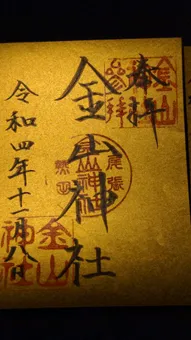 奉拝
金山神社
令和四年十一月八日
金山
参拝
尾張
金山神社
熱田
金山
神社